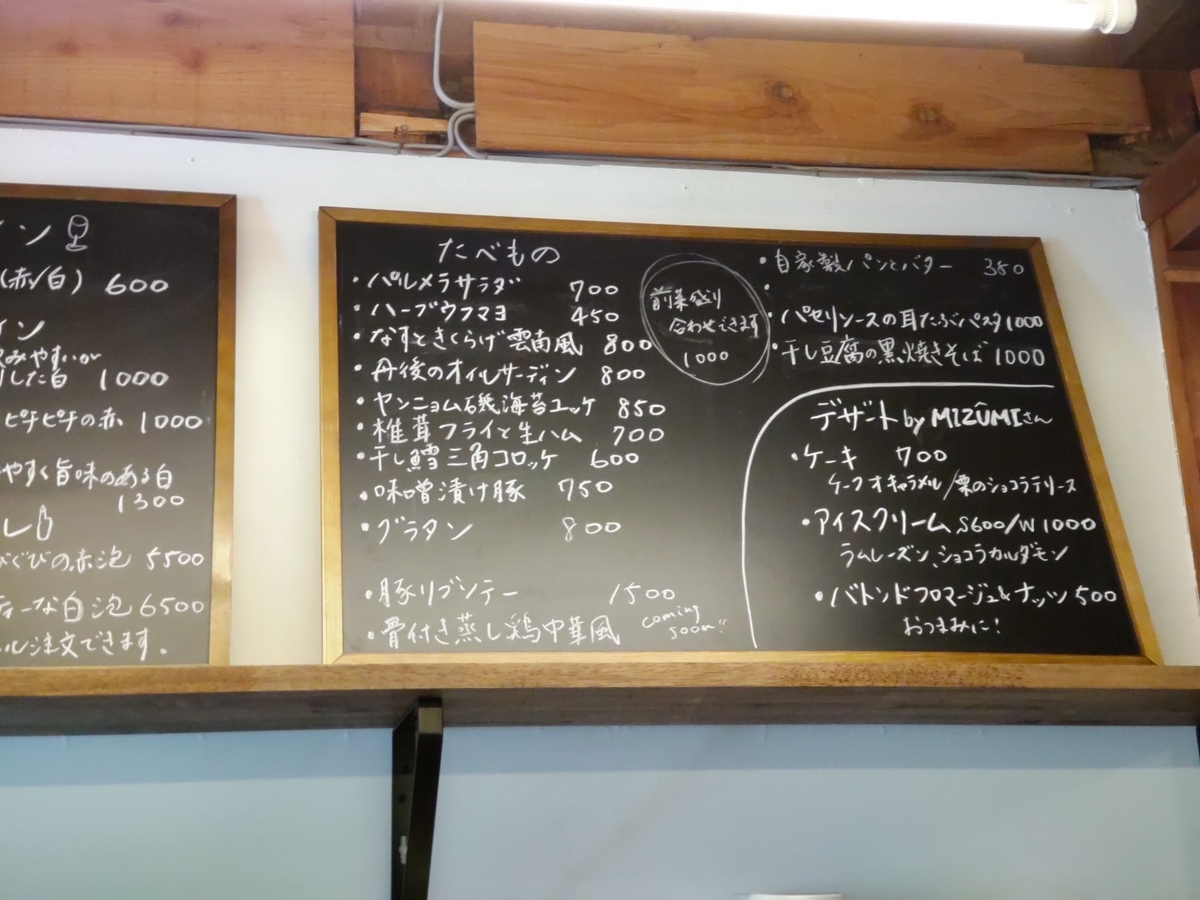 イン
(赤/白) 600
イン
みやすいが
した白 1000
ピチピチの赤 1000
やすく旨味のある白
1300
レ
びぐびの赤泡 5500
ティーな白泡 6500
ル注文できます。
たべもの
・パルメラサラダ 700
・ハーブウフマヨ 450
・なすときくらげ雲南風 800
・丹後のオイルサーディン 800
・ヤンニョム磯海苔ユッケ 850
・椎茸フライと生ハム 700
・干し鱈三角コロッケ 600
・味噌漬け豚 750
・グラタン 800
・豚リブシテー 1500
・骨付き蒸し鶏中華風 coming soon!!
前菜盛り
合わせできます
1000
・自家製パンとバター 350
・
・パセリソースの耳たぶパスタ 1000
・干し豆腐の黒焼きそば 1000
デザート by MIZUMIさん
・ケーキ 700
ケークオキャラメル/栗のショコラテリーヌ
・アイスクリーム S600/W1000
ラムレーズン、ショコラカルダモン
・バトンドフロマージュ&ナッツ 500
おつまみに!